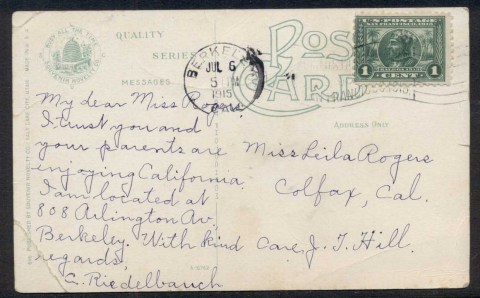 QUALITY
SERIES
MESSAGES
BERKELEY
JUL 6
5
1915
CAL.
POST
CARD
U·S·POSTAGE
SAN FRANCISCO
1 CENT 1
ADDRESS ONLY
My dear Miss Rogers
I trust you and
your parents are
enjoying California.
I am located at
808 Arlington Av,
Berkeley. With kind
regards,
Riedelbauch
Miss Leila Rogers
Colfax, Cal.
Care, J. T. Hill.